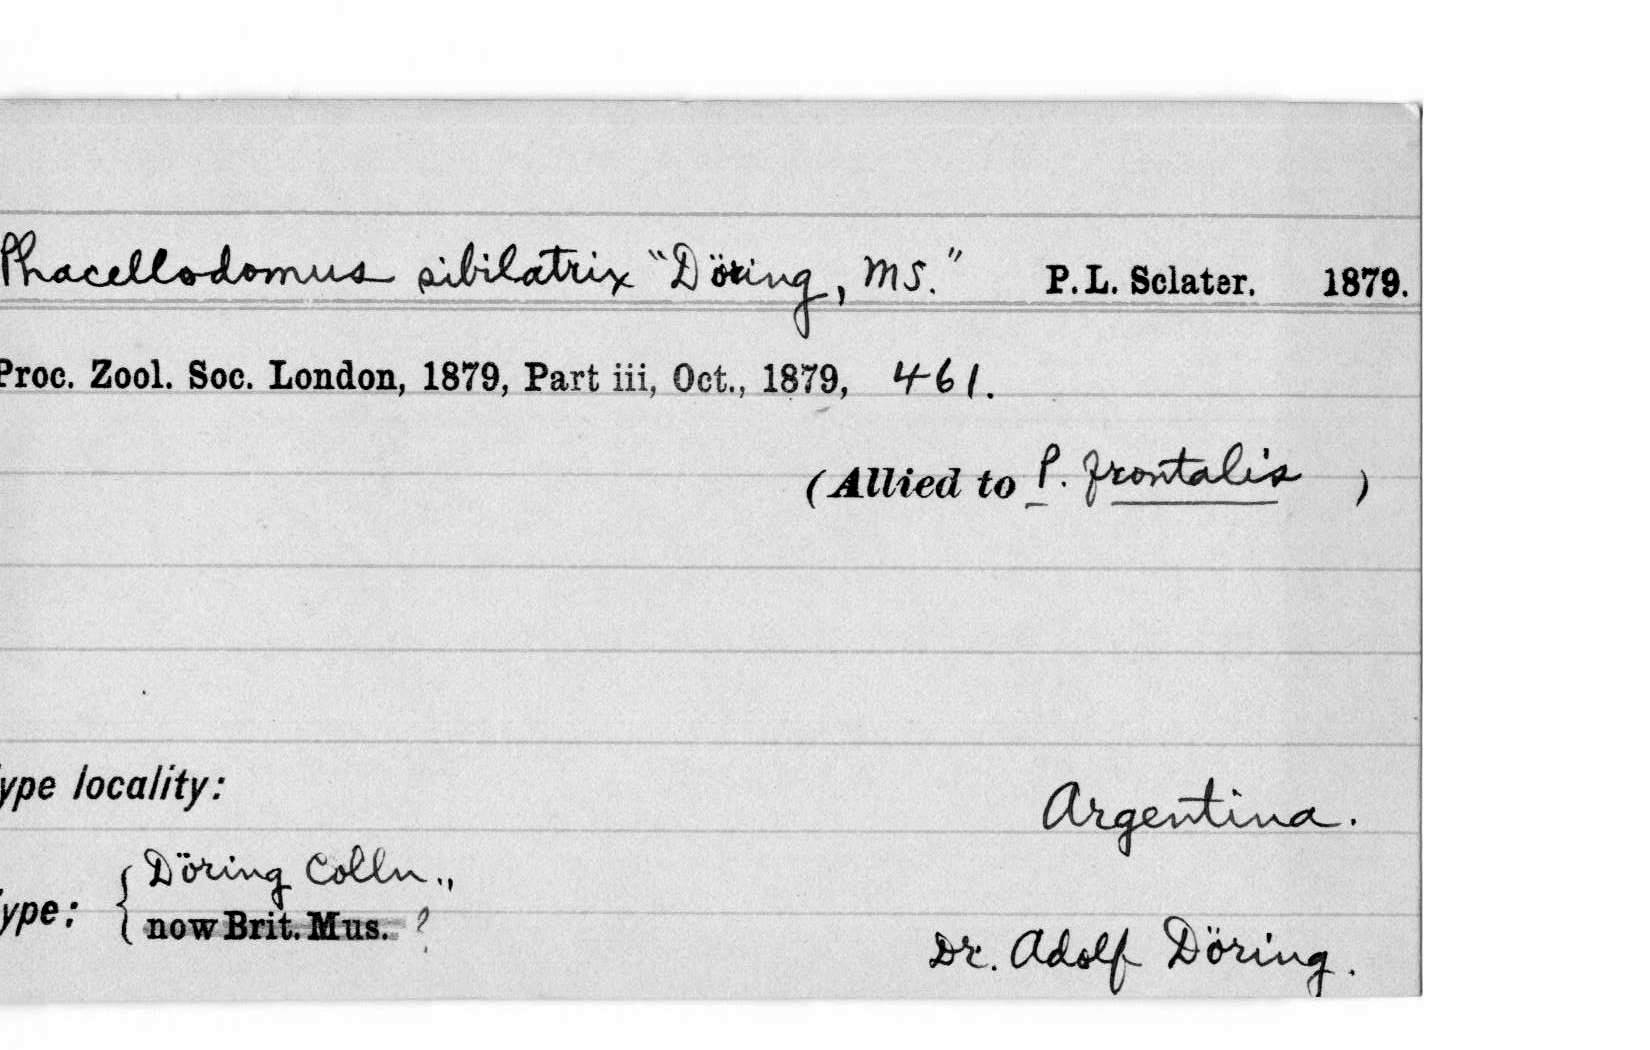 Phacellodomus sibilatrix "Döring, MS." P. L. Sclater. 1879.
Proc. Zool. Soc. London, 1879, Part iii, Oct., 1879, 461.
(Allied to P. frontalis )
ype locality: Argentina.
Döring Colln.,
ype: now Brit. Mus. ?
Dr. Adolf Döring.